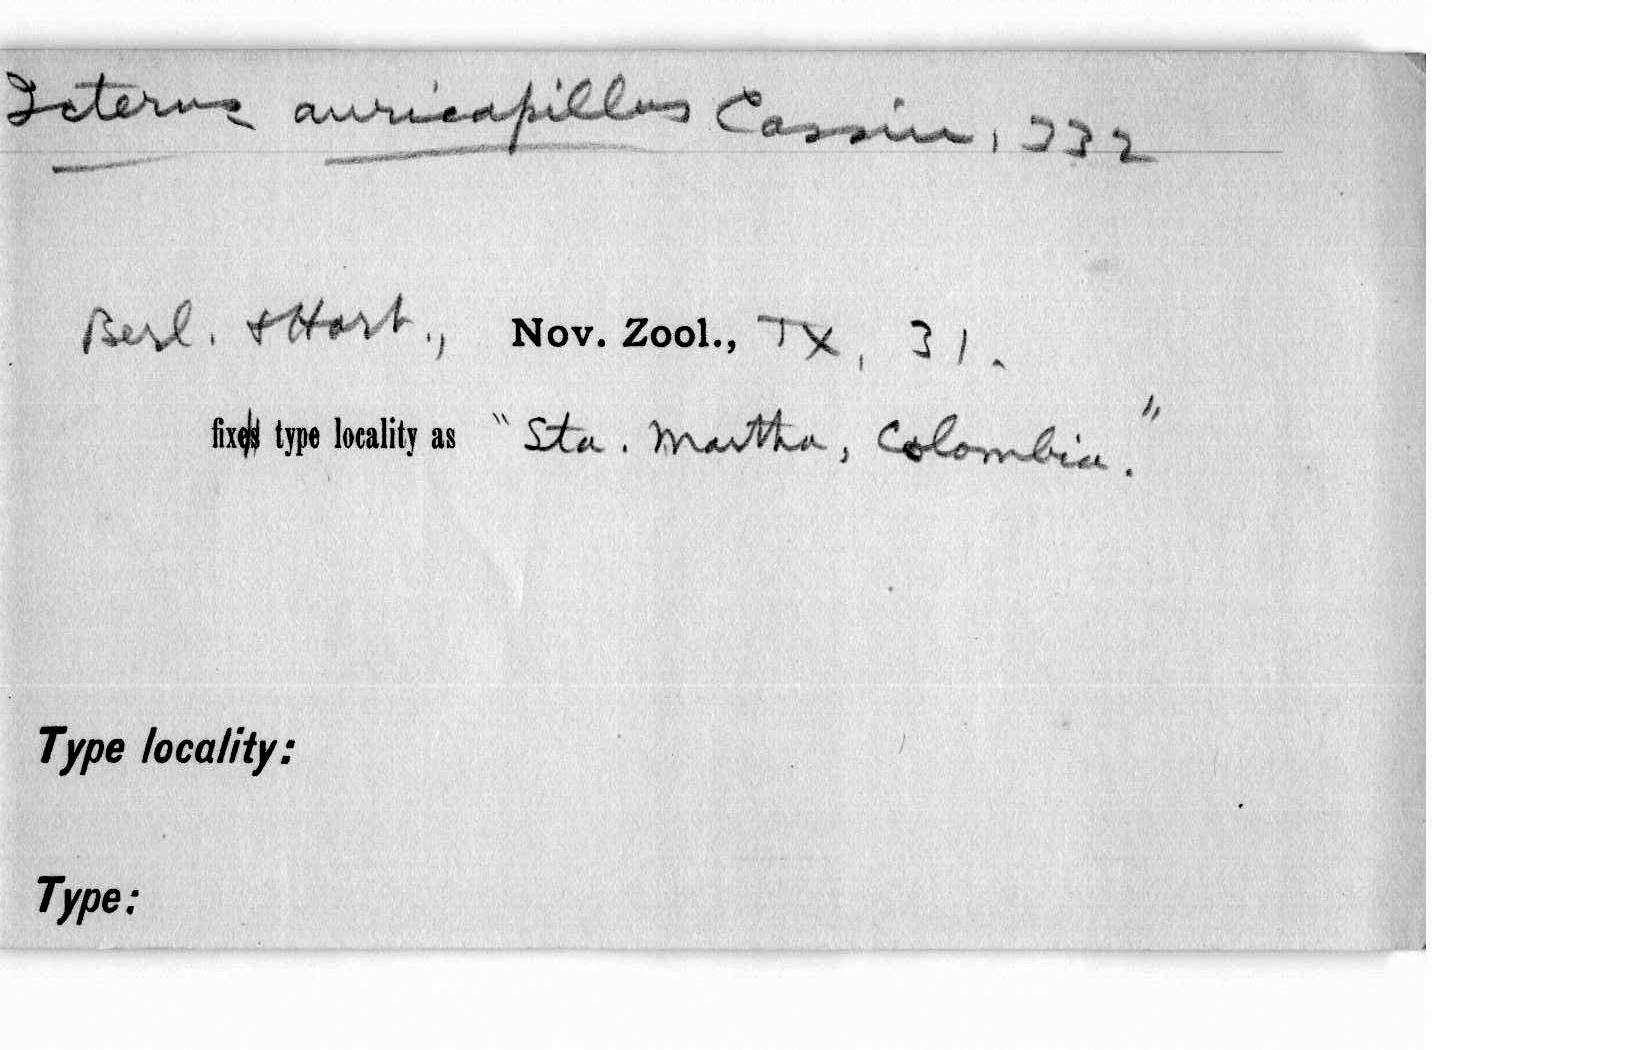 Icterus auricapillus Cassin, 332
Berl. & Hart., Nov. Zool., IX, 31.
fixes type locality as "Sta. Martha, Colombia."
Type locality:
Type: